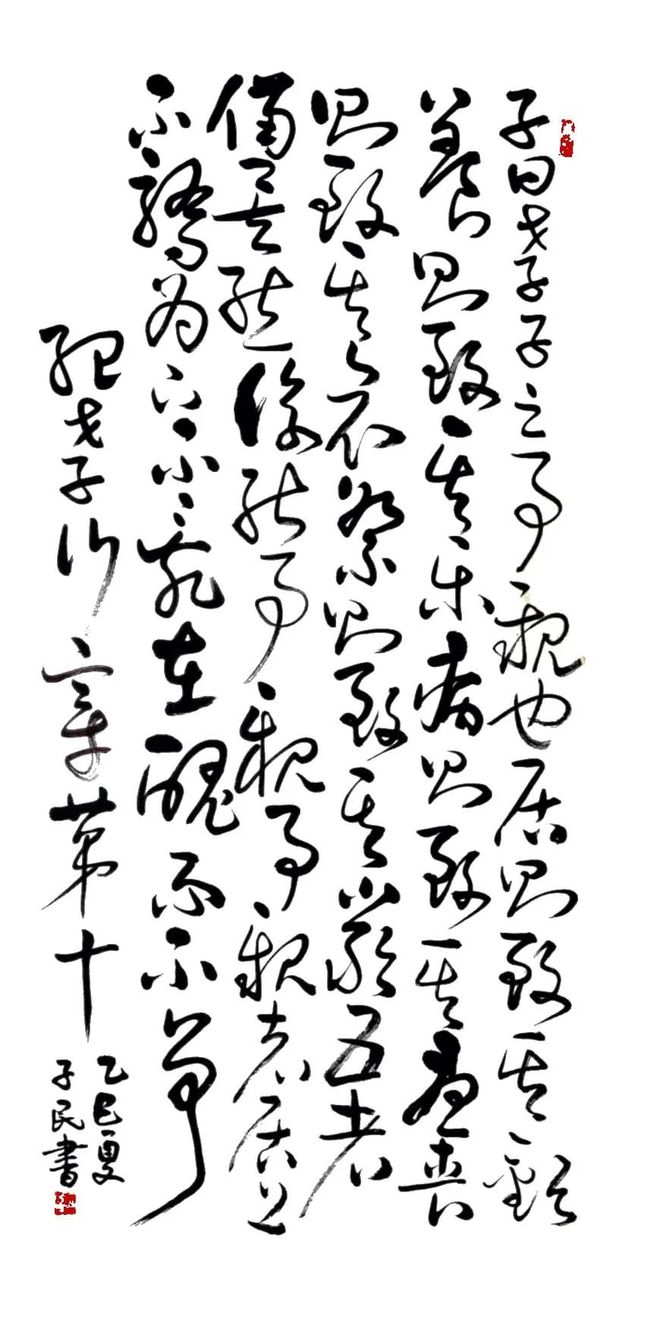 子曰孝子之事親也居則致其敬
養則致其樂病則致其憂喪
則致其哀祭則致其嚴五者
備矣然後能事親事親者居上
不驕為下不亂在醜而不爭
紀孝行章第十
乙巳夏
子民書